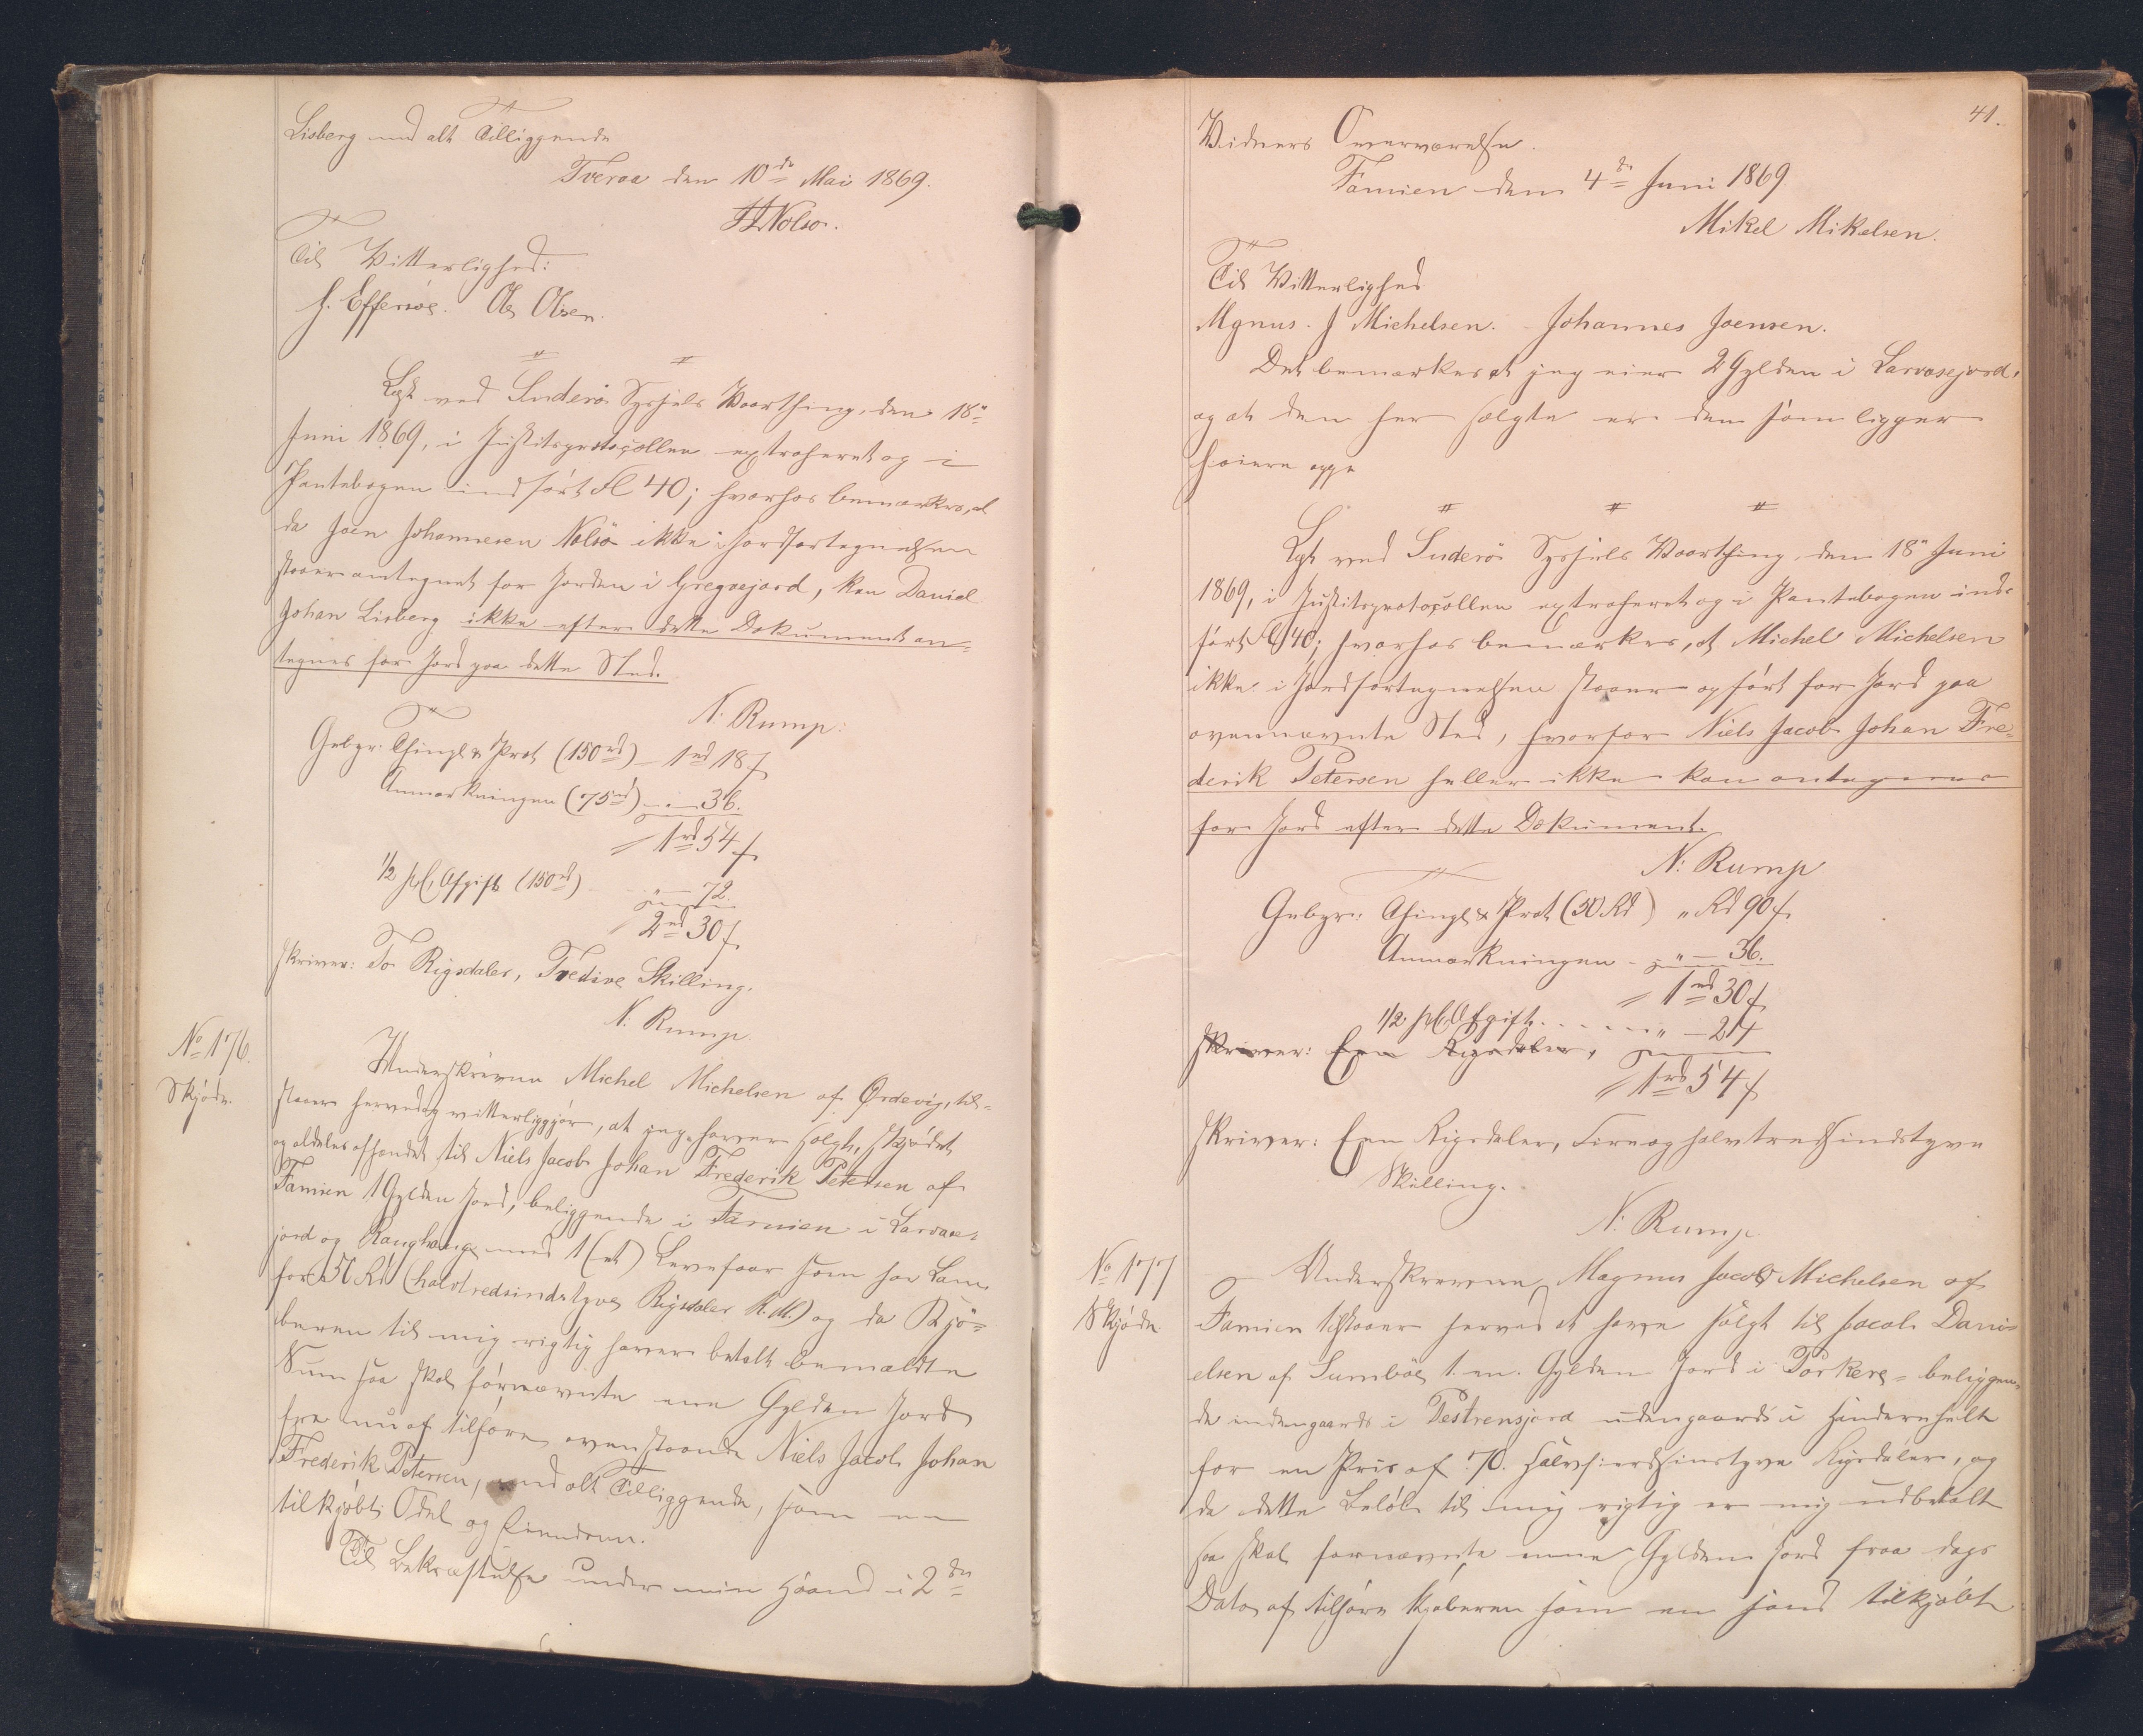 Lisberg med alt Tilliggende
Tveraa den 10de Mai 1869.
Til Vitterlighed:
J. Effersöe. Ole Olsen.
Læst ved Suderö Syssels Vaarthing, den 18n
Juni 1869, i Justitsprotocollen extraheret og i
Pantebogen indfört Fl 40; hvorhos bemærkes, at
da Joen Johannesen Nolsö ikke i Jordfortegnelsen
staaer antegnet for Jorden i Gregasejord, kan Daniel
Johan Lisberg ikke efter dette Dokument an-
tegnes for Jord paa dette Sted.
N. Rump:
Gebyr: Thingl & Prot (150rd) — 1rd 18s
Anmærkningen (75rd) — " — 36.
1rd 54s
1/2 pCt Afgift (150rd) " — 72.
2rd 30s
skriver: To Rigsdaler, Tredive Skilling.
N. Rump.
No 176.
Skjöde.
Underskrevne Michel Michelsen af Ördevig, til-
staaer herved og vitterliggjör, at jeg haver solgt, skjödet
og aldeles afhændet til Niels Jacob Johan Frederik Petersen af
Famien 1 Gylden Jord, beliggende i Famien i Larvase-
jord og Ranghauge med 1 (et) Levefaar som har Lam
for 50 Rd (halvtredsindstyve Rigsdaler R.M.) og da Kjö-
beren til mig rigtig haver betalt bemældte
Sum saa skal förnævnte ene Gylden Jord
fra nu af tilhöre ovenstaaende Niels Jacob Johan
Frederik Petersen, med alt Tilliggende, som en
tilkjöbt Odel og Eiendom.
Til Bekræftelse under min Haand i 2de
41.
Vidners Overværelse.
Famien den 4de Juni 1869
Mikel Mikelsen.
Til Vitterlighed
Mgnus. J Michelsen. Johannes Joensen.
Det bemærkes at jeg eier 2 Gylden i Larvasejord.
og at den her solgte er den som ligger
höiere oppe
Læst ved Suderö Syssels Vaarthing, den 18n Juni
1869, i Justitsprotocollen extraheret og i Pantebogen ind-
fört Fl 40; hvorhos bemærkes, at Michel Michelsen
ikke i Jordfortegnelsen staaer opfört for Jord paa
ovennævnte Sted, hvorfor Niels Jacob Johan Fre-
derik Petersen heller ikke kan antegnes
for Jord efter dette Dokument.
N. Rump
Gebyr: Thingl & Prot (50 Rd) " Rd 90s.
Anmærkningen - " — 36.
1rd 30s
1/2 pCt Afgift . . . . . " — 24
skriver: Een Rigsdaler,
1rd 54s
skriver: Een Rigsdaler, Fire og halvtredsindstyve
Skilling.
N. Rump.
No 177
Skjöde
Underskrevne Magnus Jacob Michelsen af
Famien tilstaaer herved at have solgt til Jacob Dani-
elsen af Sumböe 1. en. Gylden Jord i Porkere - beliggen-
de indengaards i Pestrensjord udengaards i
for en Pris af 70. halvfierdsindstyve Rigsdaler, og
da dette Belöb til mig rigtig er mig udbetalt
saa skal fornævnte ene Gylden Jord fraa dags
Dato af tilhöre Kjöberen som en tilkjöbt